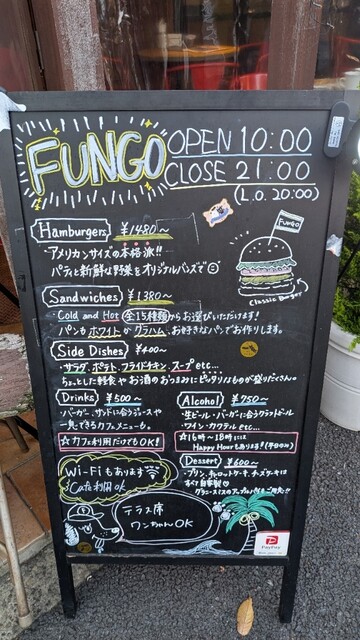 FUNGO
OPEN 10:00
CLOSE 21:00
(L.O. 20:00)
Hamburgers ¥1480～
・アメリカンサイズの本格派!!
パティと新鮮な野菜をオリジナルバンズで
FUNGO
Classic Burger
Sandwiches ¥1380～
・Cold and Hot 全15種類からお選びいただけます!
パンもホワイトかグラハム、お好きなパンでお作りします。
Side Dishes ¥400～
・サラダ、ポテト、フライドチキン、スープ etc...
ちょっとした軽食やお酒のおつまみにピッタリなものが盛りだくさん。
Drinks ¥500～
・バーガー、サンドに合うジュースや
一息できるカフェメニューも。
☆カフェ利用だけでもOK!
Alcohol ¥750～
・生ビール・バーガーに合うクラフトビール
・ワイン・カクテル etc...
☆16時～18時には
Happy Hourもあります!(平日のみ)
Wi-Fiもあります
Cafe利用ok
Dessert ¥600～
・プリン、キャロットケーキ、チーズケーキは
すべて自家製
テラス席
ワンちゃんOK
PayPay